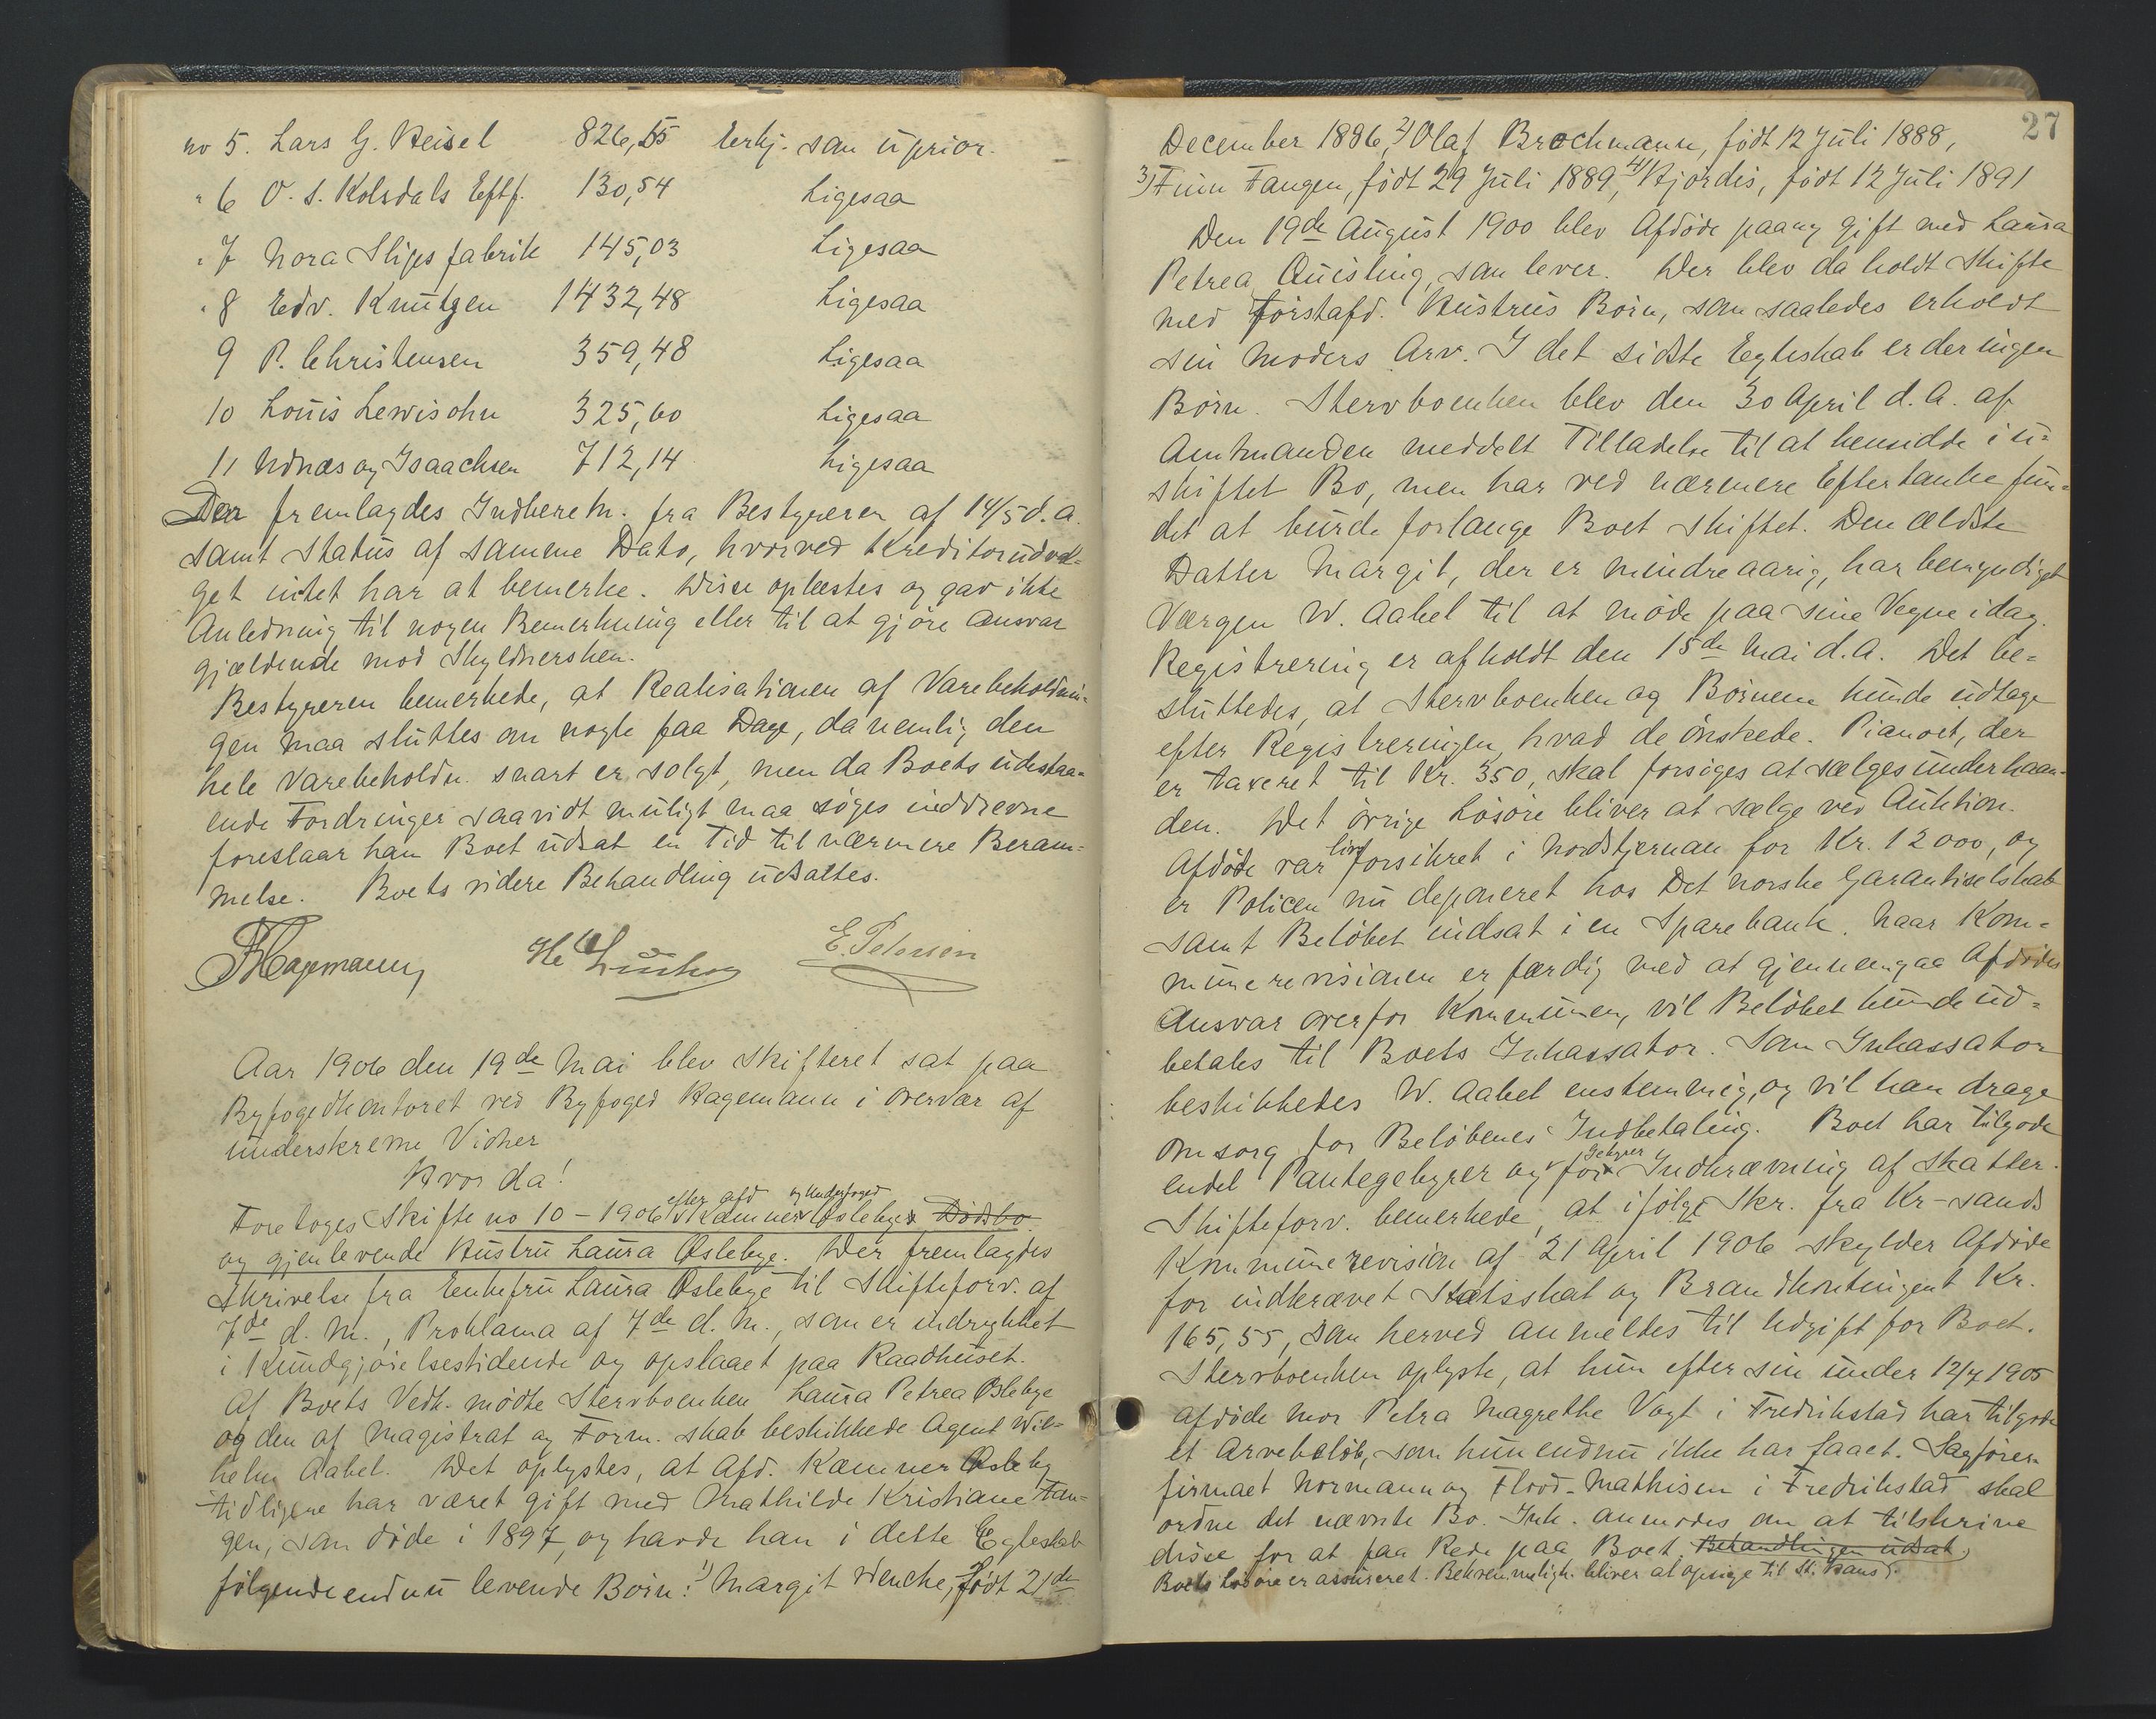 no 5. Lars G. Heisel 826,55 Erkj. som uprior.
" 6 O. S. Kolsdals Eftf. 130,54 Ligesaa
" 7 Nora Slipsfabrik 145,03 Ligesaa
" 8 Edv. Knutzen 1432,48 Ligesaa
9 P. Christensen 359,48 Ligesaa
10 Louis Lewisohn 325,60 Ligesaa
11 Udnæs og Isaachsen 712,14 Ligesaa
Der fremlagdes Indberetn. fra Bestyreren af 14/5 d. a.
samt Status af samme Dato, hvorved Kreditorudval=
get intet har at bemerke. Disse oplæstes og gav ikke
Anledning til nogen Bemerkning eller til at gjøre Ansvar
gjældende mod Skyldnersken.
Bestyreren bemerkede, at Realisationen af Varebeholdnin-
gen maa sluttes om nogle faa Dage, da nemlig den
hele Varebeholdn. snart er solgt, men da Boets udestaa-
ende Fordringer saavidt muligt maa søges inddrevne
foreslaar han Boet udsat en Tid til nærmere Beram-
melse. Boets videre Behandling udsattes.
Hagemann E. Petersen
Aar 1906 den 19de Mai blev Skifteret sat paa
Byfogedkontoret ved Byfoged Hagemann i Overvær af
underskrevne Vidner
Hvor da!
Foretoges Skifte no 10 - 1906 efter afd Kæmner og Underfoged Oslebye Dødsbo
og gjenlevende Hustru Laura Oslebye. Der fremlagdes
Skrivelse fra Enkefru Laura Oslebye til Skifteforv. af
7de d. M., Proklama af 7de d. M., som er indrykket
i Kundgjørelsestidende og opslaaet paa Raadhuset.
Af Boets Vedk. mødte Stervboenken Laura Petrea Oslebye
og den af Magistrat og Form. skab beskikkede Agent Wil-
helm Aabel. Det oplystes, at Afd. Kæmner Osleby
tidligere har været gift med Mathilde Kristiane Fan-
gen, som døde i 1897, og havde han i dette Egteskab
følgende endnu levende Børn: 1) Margit Wencke, født 21de
27
December 1886, 2) Olaf Brochmann, født 12 Juli 1888,
3) Finn Fangen, født 29 Juli 1889, 4) Hjørdis, født 12 Juli 1891
Den 19de August 1900 blev Afdøde paany gift med Laura
Petrea Quisling, som lever. Der blev da holdt Skifte
med førstafd. Hustrus Børn, som saaledes erholdt
sin Moders Arv. I det sidste Egteskab er der ingen
Børn. Stervboenken blev den 30 April d. A. af
Amtmanden meddelt Tilladelse til at hensidde i u-
skiftet Bo, men har ved nærmere Eftertanke fun-
det at burde forlange Boet skiftet. Den ældste
Datter Margit, der er mindreaarig, har bemyndiget
Værgen W. Aabel til at møde paa sine Vegne idag.
Registrering er afholdt den 15de Mai d. A. Det be-
sluttedes, at Stervboenken og Børnene kunde udtage
efter Registreringen, hvad de ønskede. Pianoet, der
er taxeret til Kr. 350, skal forsøges at sælges underhaan-
den. Det øvrige Løsøre bliver at sælge ved Auktion.
Afdøde var livsforsikret i Nordstjernan for Kr. 12000, og
er Policen nu deponeret hos Det norske Garantiselskab
samt Beløbet indsat i en Sparebank. Naar Kom-
munerevisionen er færdig med at gjennemgaa Afdødes
Ansvar overfor Kommunen, vil Beløbet kunde ud-
betales til Boets Inkassator. Som Inkassator
beskikkedes W. Aabel enstemmig, og vil han drage
Omsorg for Beløbenes Indbetaling. Boet har tilgode
endel Pantegebyrer og Gebyrer for Indkrævning af Skatter.
Skifteforv. bemerkede, at ifølge Skr. fra Kr-sands
Kommunerevision af 21 April 1906 skylder Afdøde
for indkrævet Statsskat og Brandkontingent Kr.
165,55, som herved anmeldes til Udgift for Boet.
Stervboenken oplyste, at hun efter sin under 12/7 1905
afdøde Mor Petra Magrethe Vogt i Fredrikstad har tilgode
et Arvebeløb, som hun endnu ikke har faaet. Sagfører-
firmaet Normann og Flood-Mathisen i Fredrikstad skal
ordne det nævnte Bo. Ink. anmodes om at tilskrive
disse for at faa Rede paa Boet. Behandlingen udsat.
Boets Løsøre er assureret. bliver at opsige til St. Hans.